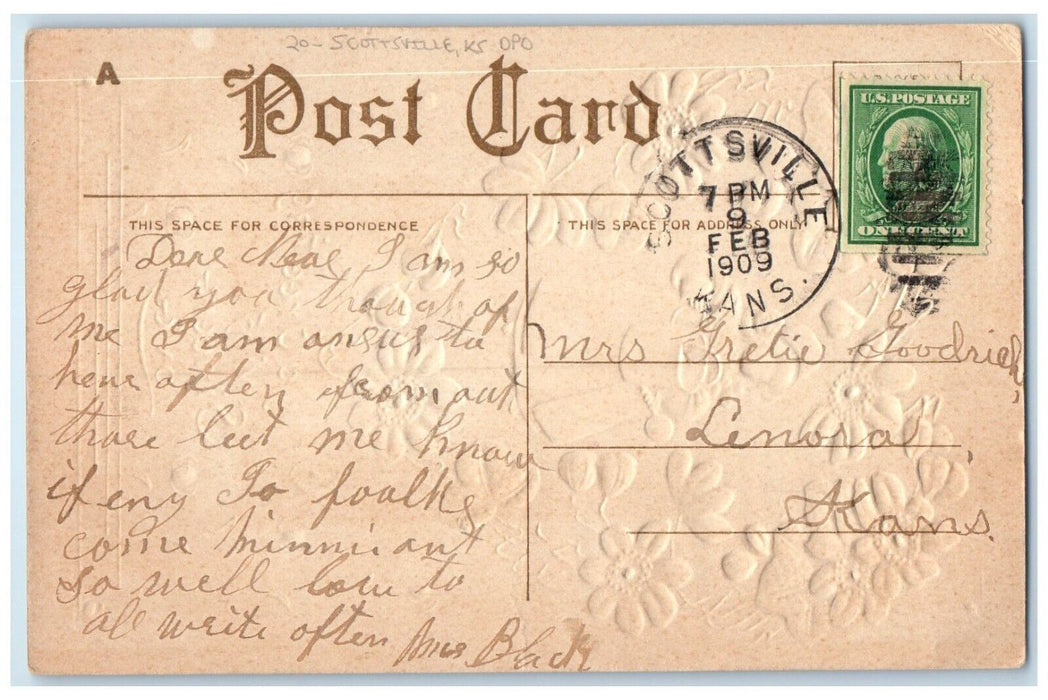 20- SCOTTSVILLE, KS DPO
A
Post Card
U.S. POSTAGE
ONE CENT
SCOTTSVILLE
7 PM
9
FEB
1909
KANS.
THIS SPACE FOR CORRESPONDENCE
THIS SPACE FOR ADDRESS ONLY
Dere I am so
glad you though of
me I am to
here often from out
thare let me know
if eny So foalks
come Minni ant
so well love to
all write often Mrs Black
Mrs Gretie Goodrich,
Lenora,
Kans.